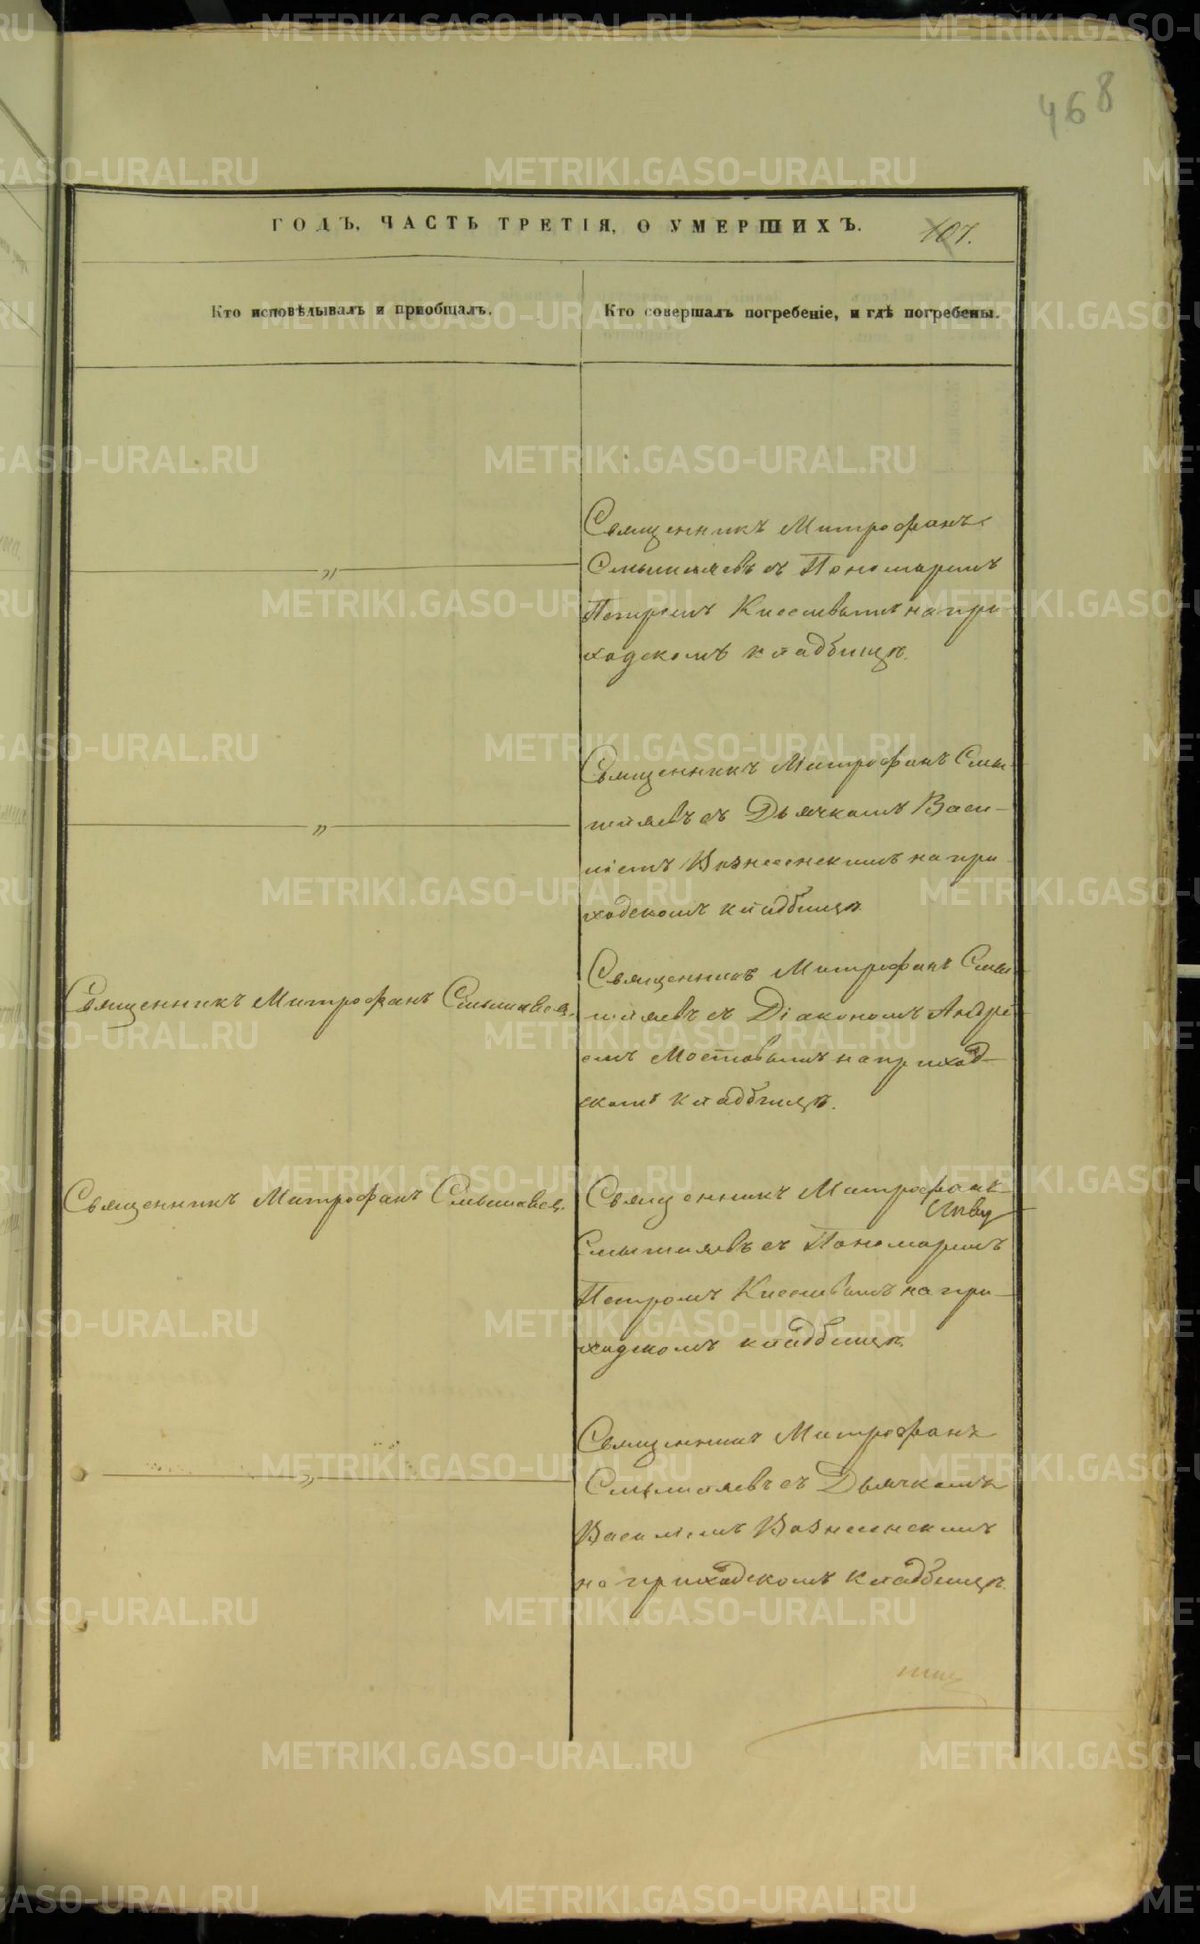 468
ГОДЪ, ЧАСТЬ ТРЕТІЯ, О УМЕРШИХЪ.
107.
Кто исповѣдывалъ и пріобщалъ.
Кто совершалъ погребеніе, и гдѣ погребены.
Священникъ Митрофанъ
Смышляевъ съ Пономаремъ
Петромъ Киселевымъ на при-
ходскомъ кладбищѣ.
Священникъ Митрофанъ Смы-
шляевъ съ Дьячкомъ Васи-
ліемъ Вознесенскимъ на при-
ходскомъ кладбищѣ
Священникъ Митрофанъ Смышляевъ.
Священникъ Митрофанъ Смы-
шляевъ съ Діакономъ Андре-
емъ Мостовымъ на приход-
скомъ кладбищѣ.
Священникъ Митрофанъ Смышляевъ.
Священникъ Митрофанъ
Смышляевъ съ Пономаремъ
Петромъ Киселевымъ на при-
ходскомъ кладбищѣ.
Священникъ Митрофанъ
Смышляевъ съ Дьячкомъ
Василіемъ Вознесенскимъ
на приходскомъ кладбищѣ.
METRIKI.GASO-URAL.RU